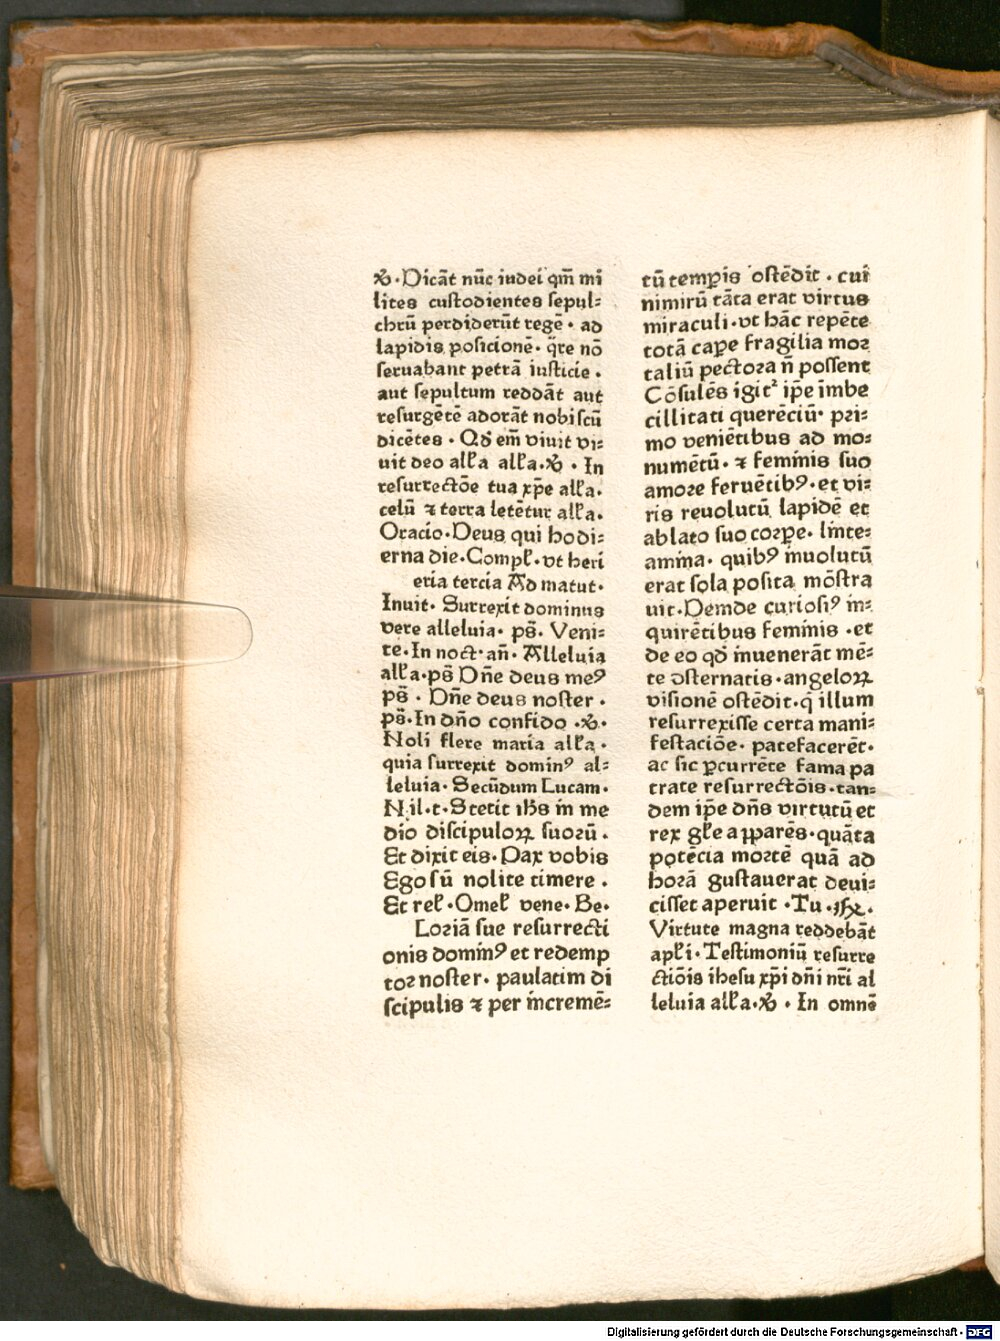 ℣·Dicāt nūc iudei qm̄ mi
lites custodientes sepul=
chrū perdiderūt regē· ad
lapidis posicionē· q̄re nō
seruabant petrā iusticie·
aut sepultum reddāt aut
resurgētē adorāt nobiscū
dicētes· Qđ em̄ viuit vi=
uit deo alľa alľa·℣· In
resurrectōe tua xp̄e alľa·
celū ⁊ terra letētur alľa·
Oracio·Deus qui hodi=
erna die·Compľ·vt heri
eria tercia Ad matut·
Inuit· Surrexit dominus
vere alleluia· ps̄· Veni=
te·In noct·an̄· Alleluia
alľa·ps̄ Dn̄e deus me⁹
ps̄· Dn̄e deus noster·
ps̄·In dn̄o confido·℣·
Noli flere maria alľa·
quia surrexit domin⁹ al=
leluia· Secūdum Lucam·
N·il·t·Stetit ihs in me
dio discipuloꝝ suorū·
Et dixit eis·Pax vobis
Ego sū nolite timere·
Et reľ·Omeľ vene· Be·
Loriā sue resurrecti
onis domin⁹ et redemp
tor noster· paulatim di
scipulis ⁊ per incremē=
tū tempꝛis ostēdit· cui
nimirū tāta erat virtus
miraculi·vt hāc repēte
totā cape fragilia mor
taliū pectora n̄ possent
Cōsulēs igit᷑ ip̄e imbe
cillitati querēciū· pri=
mo veniētibus ad mo=
numētū· ⁊ feminis suo
amore feruētib⁹·et vi=
ris reuolutū lapidē et
ablato suo corpe· linte=
amina· quib⁹ inuolutū
erat sola posita mōstra
uit·Deinde curiosi⁹ in=
quirētibus feminis·et
de eo qđ inuenerāt mē=
te ꝯsternatis·angeloꝝ
visionē ostēdit·q̇ illum
resurrexisse certa mani=
festaciōe· patefacerēt·
ac sic ꝑcurrēte fama pa
trate resurrectōis·tan=
dem ip̄e dn̄s virtutū et
rex gľe apparēs·quāta
potēcia mortē quā ad
horā gustauerat deui=
cisset aperuit·Tu·℟·
Virtute magna reddebāt
apľi·Testimoniū resurre
ctiōis ihesu xp̄i dn̄i nr̄i al
leluia alľa·℣· In omnē
Digitalisierung gefördert durch die Deutsche Forschungsgemeinschaft - DFG